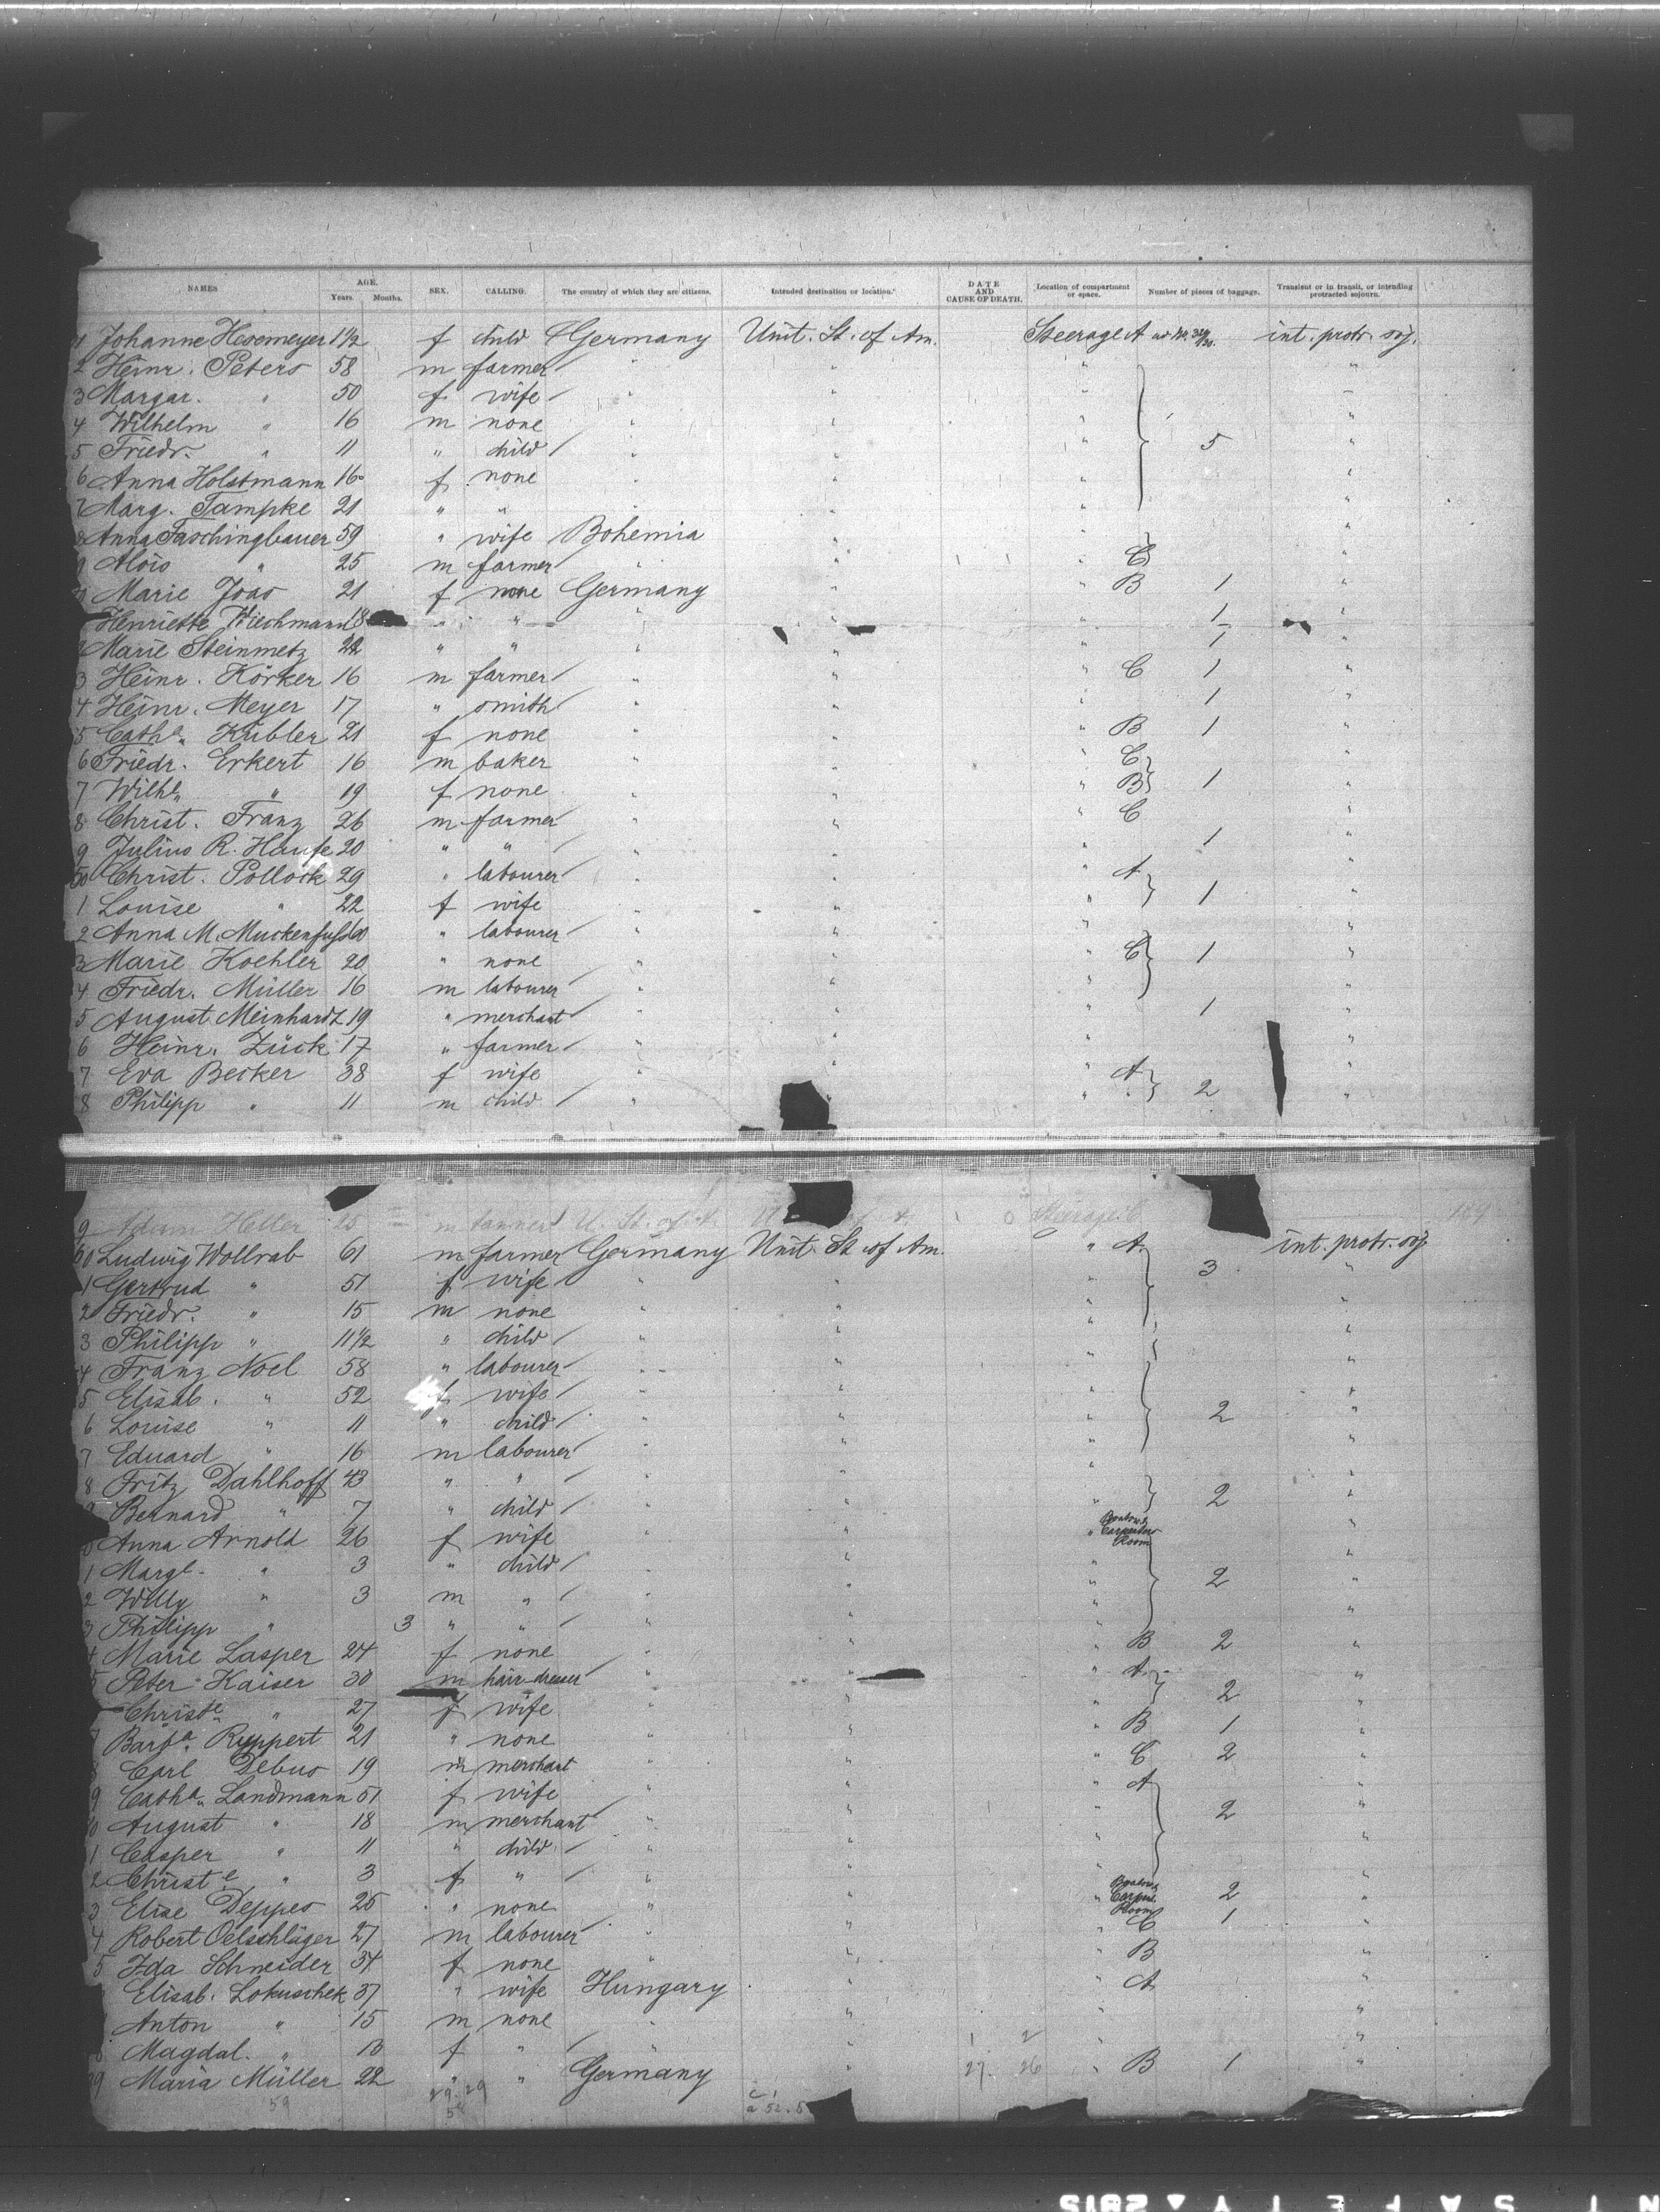 NAMES AGE. Years. Months. SEX. CALLING. The country of which they are citizens. Intended destination or location. DATE AND CAUSE OF DEATH. Location of compartment or space. Number of pieces of baggage. Transient or in transit, or intending protracted sojourn.
1 Johanne Hesemeyer 1 1/2 f child Germany Unit. St. of Am. Steerage A int. protr. soj.
2 Heinr. Peters 58 m farmer " " " "
3 Margar. " 50 f wife " " "
4 Wilhelm " 16 m none " " " "
5 Friedr. " 11 " child " " " 5 "
6 Anna Holstmann 16 f none " " " "
7 Marg. Tampke 21 " " " " " "
8 Anna Faschingbauer 59 " wife Bohemia " " "
9 Alois " 25 m farmer " " " C "
Marie Joas 21 f none Germany " " B 1 "
Henriette Wiechmann 18 " " " " " 1
2 Marie Steinmetz 22 " " " " " 1 "
3 Heinr. Körker 16 m farmer " " " C 1 "
4 Heinr. Meyer 17 " smith " " " 1 "
5 Catha. Kübler 21 f none " " " B 1 "
6 Friedr. Erkert 16 m baker " " " C "
7 Wilhe. " 19 f none " " " B 1 "
8 Christ. Franz 26 m farmer " " " C "
9 Julius R. Haufe 20 " " " " " 1 "
50 Christ. Pollock 29 " labourer " " " A "
1 Louise " 22 f wife " " " 1 "
2 Anna M. Muckenfuss 60 " labourer " " " "
3 Marie Koehler 20 " none " " " C 1 "
4 Friedr. Müller 16 m labourer " " " "
5 August Meinhardt 19 " merchant " " " 1 "
6 Heinr. Zück 17 " farmer " " " "
7 Eva Becker 38 f wife " " " A "
8 Philipp " 11 m child " " " 2 "
9 Adam Heller 25 m tanner U. St. of A. Steerage C
60 Ludwig Wollrab 61 m farmer Germany Unit. St. of Am. " A int. protr. soj.
1 Gertrud " 51 f wife " " " 3 "
2 Friedr. " 15 m none " " " "
3 Philipp " 11 1/2 " child " " " "
4 Franz Noel 58 " labourer " " " "
5 Elisab. " 52 f wife " " " "
6 Louise " 11 " child " " " 2 "
7 Eduard " 16 m labourer " " " "
8 Fritz Dahlhoff 43 " " " " " "
Bernard " 7 " child " " " 2 "
Anna Arnold 26 f wife " " " Carpenter Room "
1 Margt. " 3 " child " " " "
2 Willy " 3 m " " " " 2 "
3 Philipp " 3 " " " " " "
4 Marie Lasper 24 f none " " " B 2 "
5 Peter Kaiser 30 m hair-dresser " " " A "
Christe. " 27 f wife " " " 2 "
7 Barba. Ruppert 21 " none " " " B 1 "
8 Carl Debus 19 m merchant " " " C 2 "
9 Catha. Landmann 51 f wife " " " A "
August " 18 m merchant " " " 2 "
1 Casper " 11 " child " " " "
2 Christe " 3 f " " " " "
3 Elise Deppes 25 " none " " " Room 2 "
4 Robert Oelschläger 27 m labourer " " " C 1 "
5 Ida Schneider 34 f none " " " B "
Elisab. Lokuschek 37 " wife Hungary " " A "
Anton " 15 m none " " " "
Magdal. " 13 f " " " " "
Maria Müller 22 " " Germany " " B 1 "
59